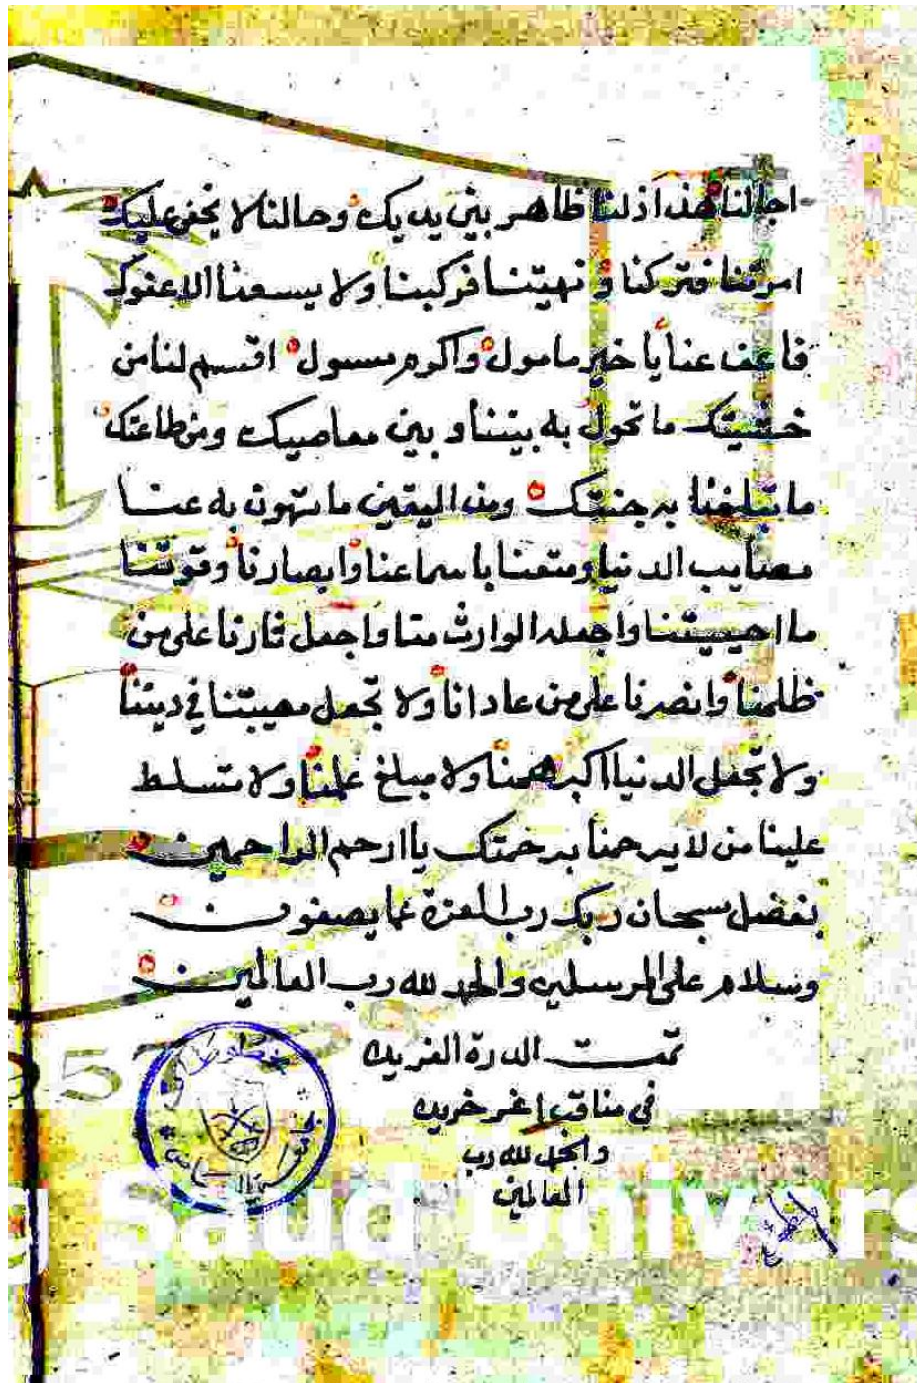 اجالنا هذا ذلنا ظاهر بين يديك وحالنا لا يخفى عليك
امرتنا فتركنا ونهيتنا فركبنا ولا يسعنا الا عفوك
فاعف عنا يا خير مامول واكرم مسول اقسم لنا من
خشيتك ما تحول به بيننا وبين معاصيك ومن طاعتك
ما تبلغنا به جنتك ومن اليقين ما تهون به عنا
مصايب الدنيا ومتعنا باسماعنا وابصارنا وقوتنا
ما احييتنا واجعله الوارث منا واجعل ثارنا على من
ظلمنا وانصرنا على من عادانا ولا تجعل مصيبتنا في ديننا
ولا تجعل الدنيا اكبر همنا ولا مبلغ علمنا ولا تسلط
علينا من لا يرحمنا برحمتك يا ارحم الراحمين
بفضل سبحان ربك رب العزة عما يصفون
وسلام على المرسلين والحمد لله رب العالمين
تمت الدرة الفريده
في مناقب خريده
والحمد لله رب
العالمين
957
g Saud Univers